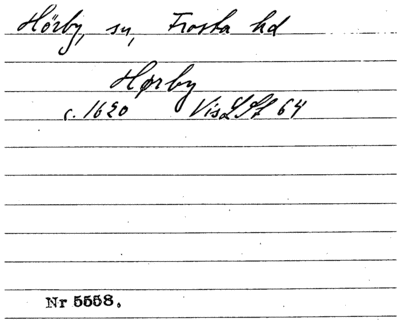 Hörby, sn, Frosta hd
Hørby
c. 1620 VisLSt 64
Nr 5558.